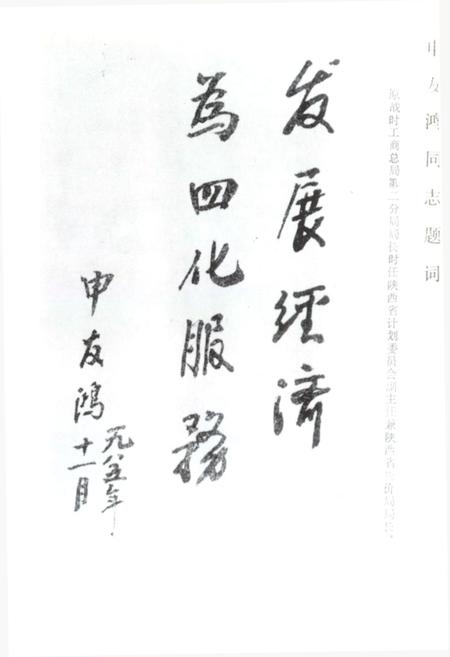 申友鸿同志题词
原战时工商总局第二分局局长时任陕西省计划委员会副主任兼陕西省物价局局长。
发展經济
為四化服務
申友鴻
一九八五年
十一月